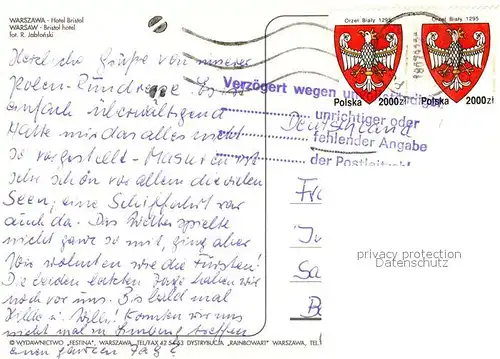 WARSZAWA - Hotel Bristol
WARSAW - Bristol hotel
fot. R. Jabłoński
Orzeł Biały 1295
Orzeł Biały 1295
Polska 2000zł
Polska 2000zł
Herzliche Grüße von unserer
Polen-Rundreise. Es ist
einfach überwältigend
Hatte mir das alles nicht
so vorgestellt - Masuren ist
sehr schön vor allem die vielen
Seen, eine Schiffahrt war
auch da. Das Wetter spielte
nicht ganz so mit, ging aber
Wir wohnten wie die Fürsten!
Die beiden letzten Tage haben wir
noch vor uns. Bis bald mal
Hilde u. Willi! Konnten wir uns
nicht mal in Limburg treffen
einen ganzen Tag?
Verzögert wegen
unrichtiger oder
fehlender Angabe
der Postleitzahl
Deutschland
privacy protection
Datenschutz
© WYDAWNICTWO "FESTINA", WARSZAWA, TEL/FAX 42-54-53 DYSTRYBUCJA "RAINBOWART" WARSZAWA, TEL